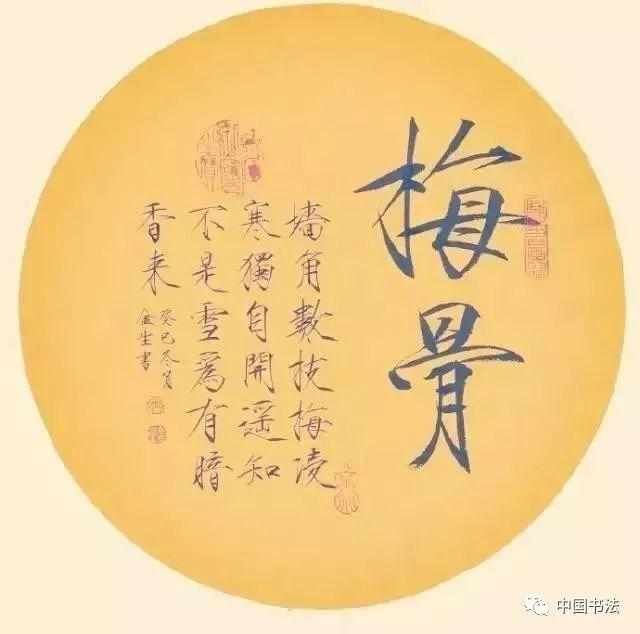 梅骨
墻角數枝梅凌
寒獨自開遥知
不是雪爲有暗
香来
癸巳冬月
金生書
中国书法